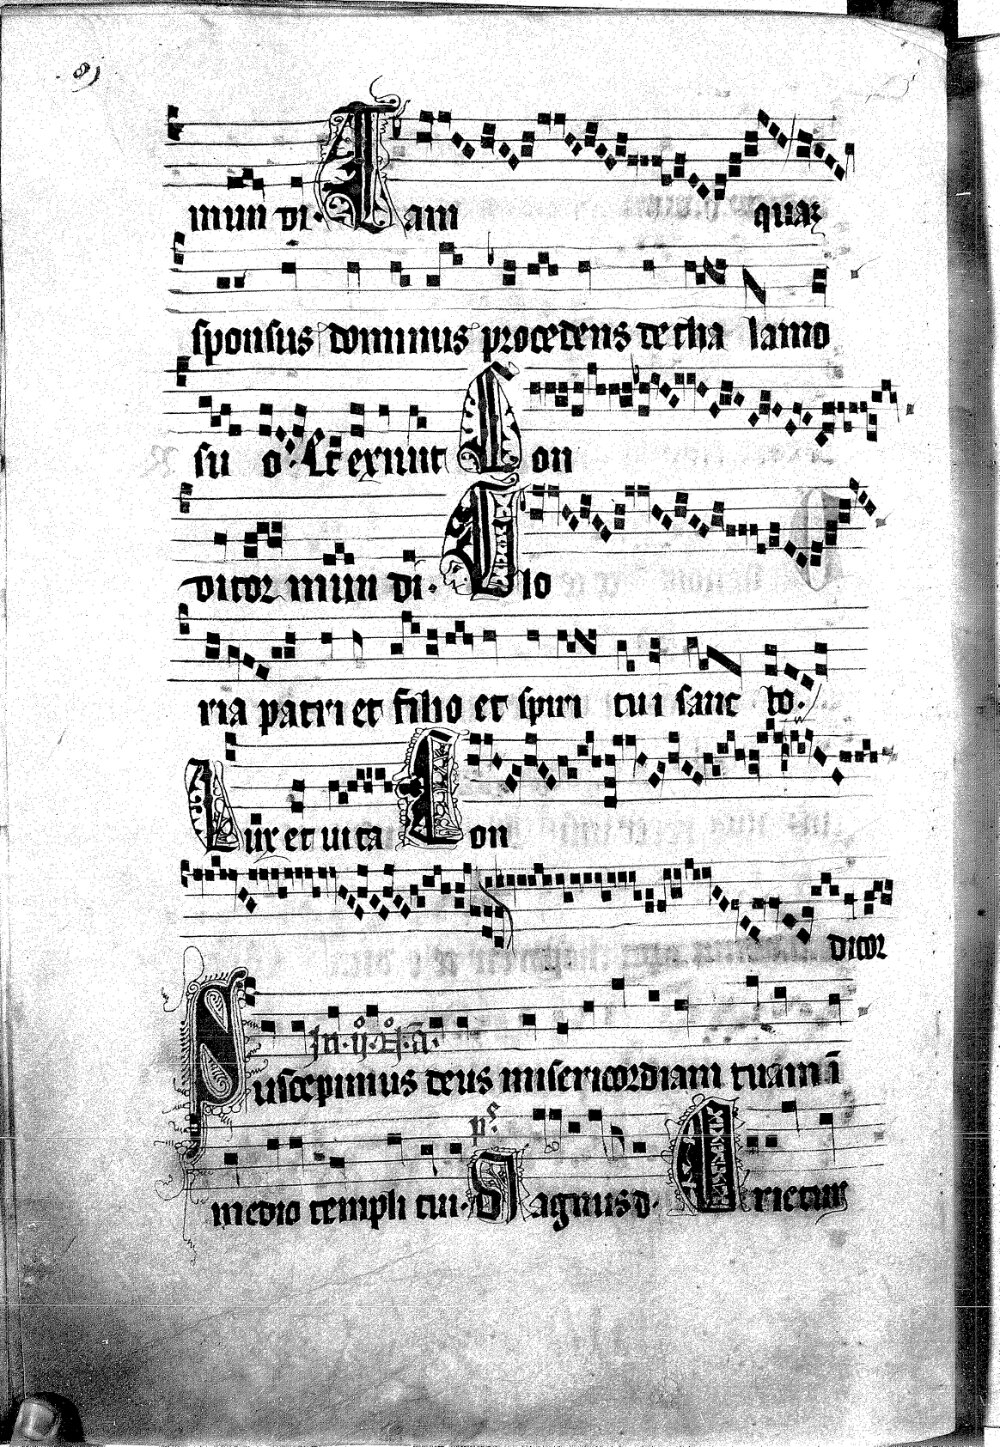 mun di. Tam quaʒ
sponsus dominus procedens de tha lamo
su o. Et exiuit Con
ditor mun di. Glo
ria patri et filio et spiri tu i sanc to.
Dix et uita Con
ditor
In .ij. a.
Suscepimus deus misericordiam tuam ī
ps.
medio templi tui. Magnus d. Orietur